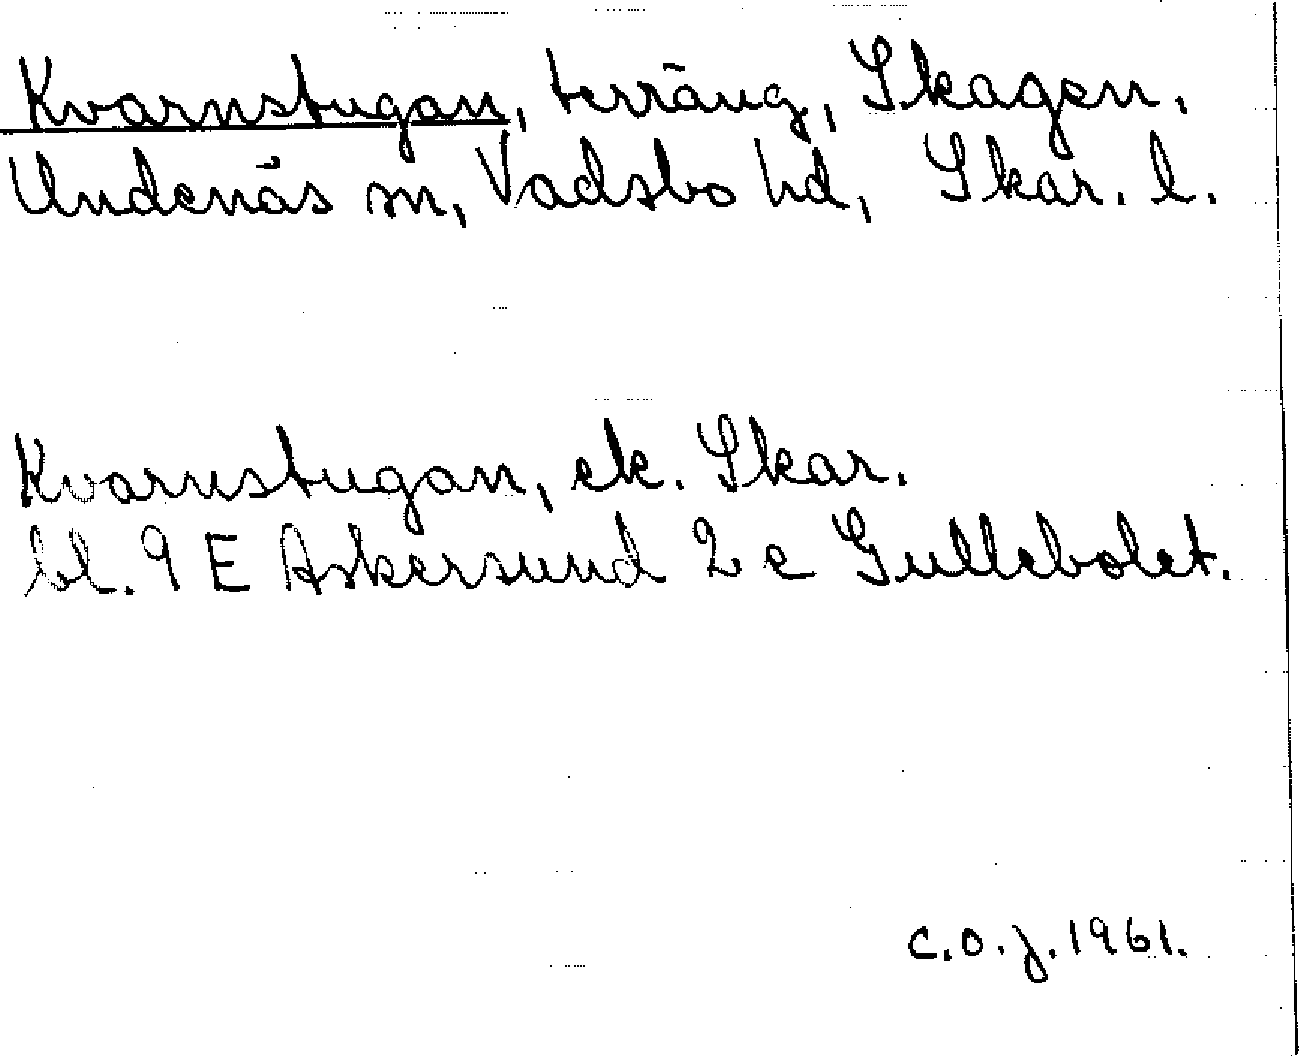 Kvarnstugan, terräng, Skagen.
Undenäs sn, Vadsbo hd, Skar. l.
Kvarnstugan, ek. Skar.
bl. 9 E Askersund 2 c Gullebolet.
C.O.J. 1961.